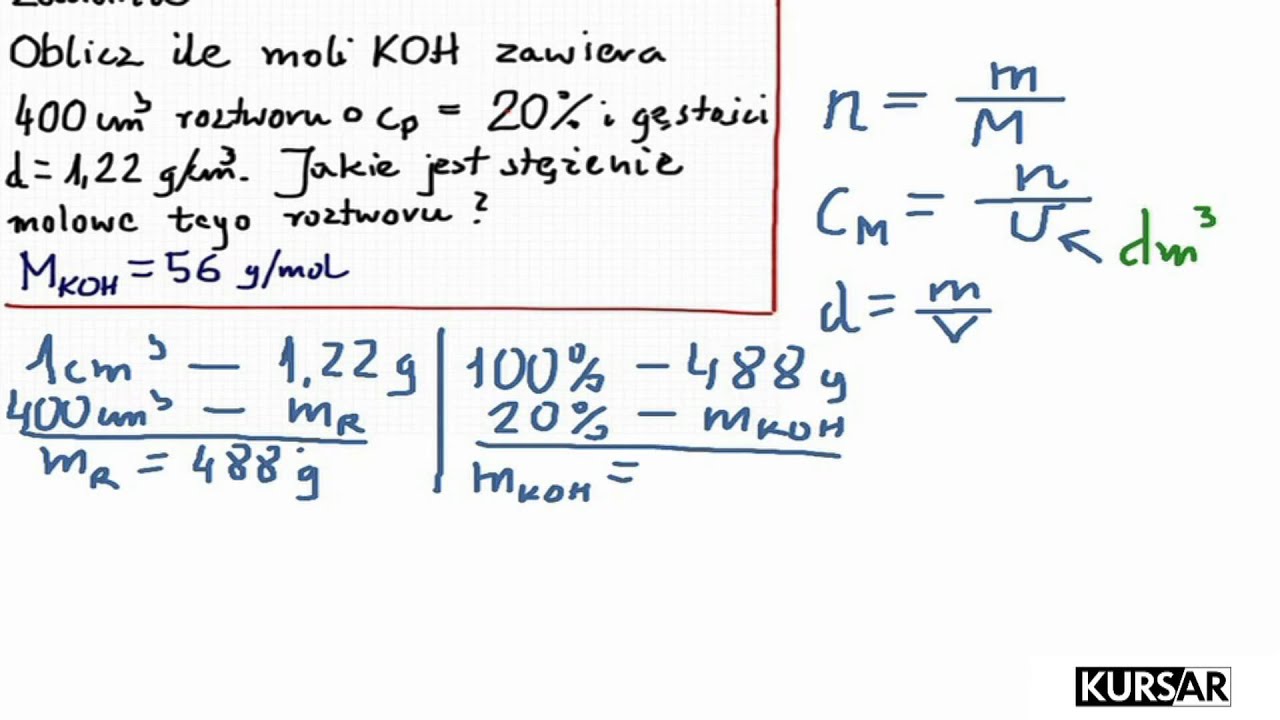 Oblicz ile moli KOH zawiera
400 cm³ roztworu o cp = 20% i gęstości
d = 1,22 g/cm³. Jakie jest stężenie
molowe tego roztworu?
M_KOH = 56 g/mol
n = m/M
C_M = n/V ← dm³
d = m/V
1cm³ — 1,22 g
400cm³ — m_R
m_R = 488 g
100% — 488 g
20% — m_KOH
m_KOH =
KURSAR